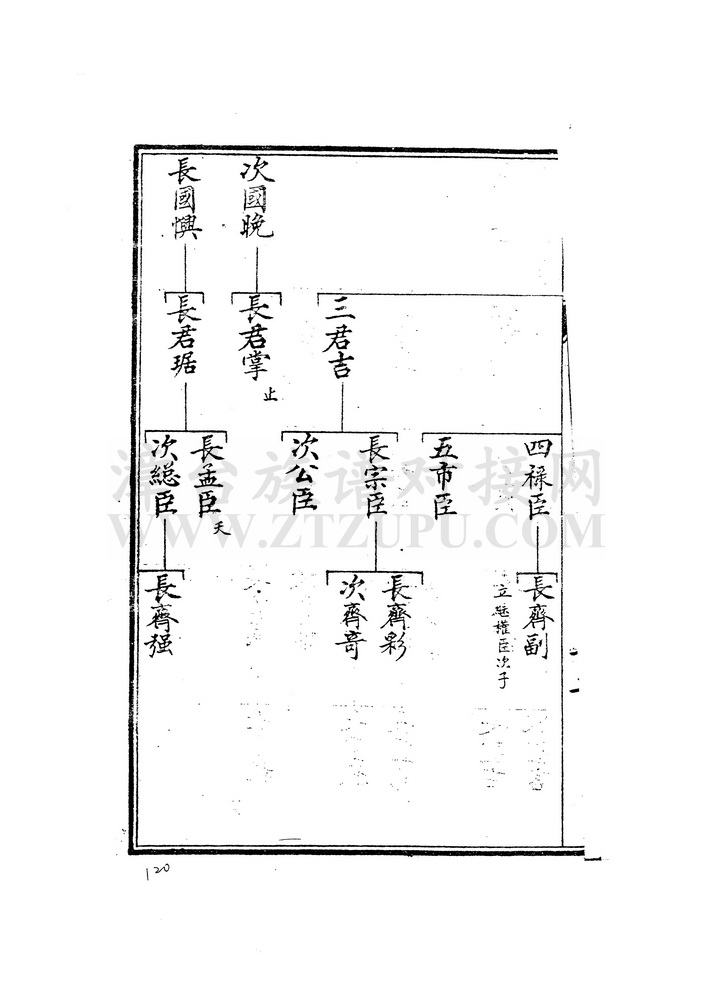 次國晚
長國懊
三君吉
長君掌
止
長君琚
四祿臣
五市臣
長宗臣
次公臣
長孟臣
夭
次總臣
長齊副
立繼權臣次子
長齊彩
次齊奇
長齊强
漳台族谱对接网
WWW.ZTZUPU.COM
120